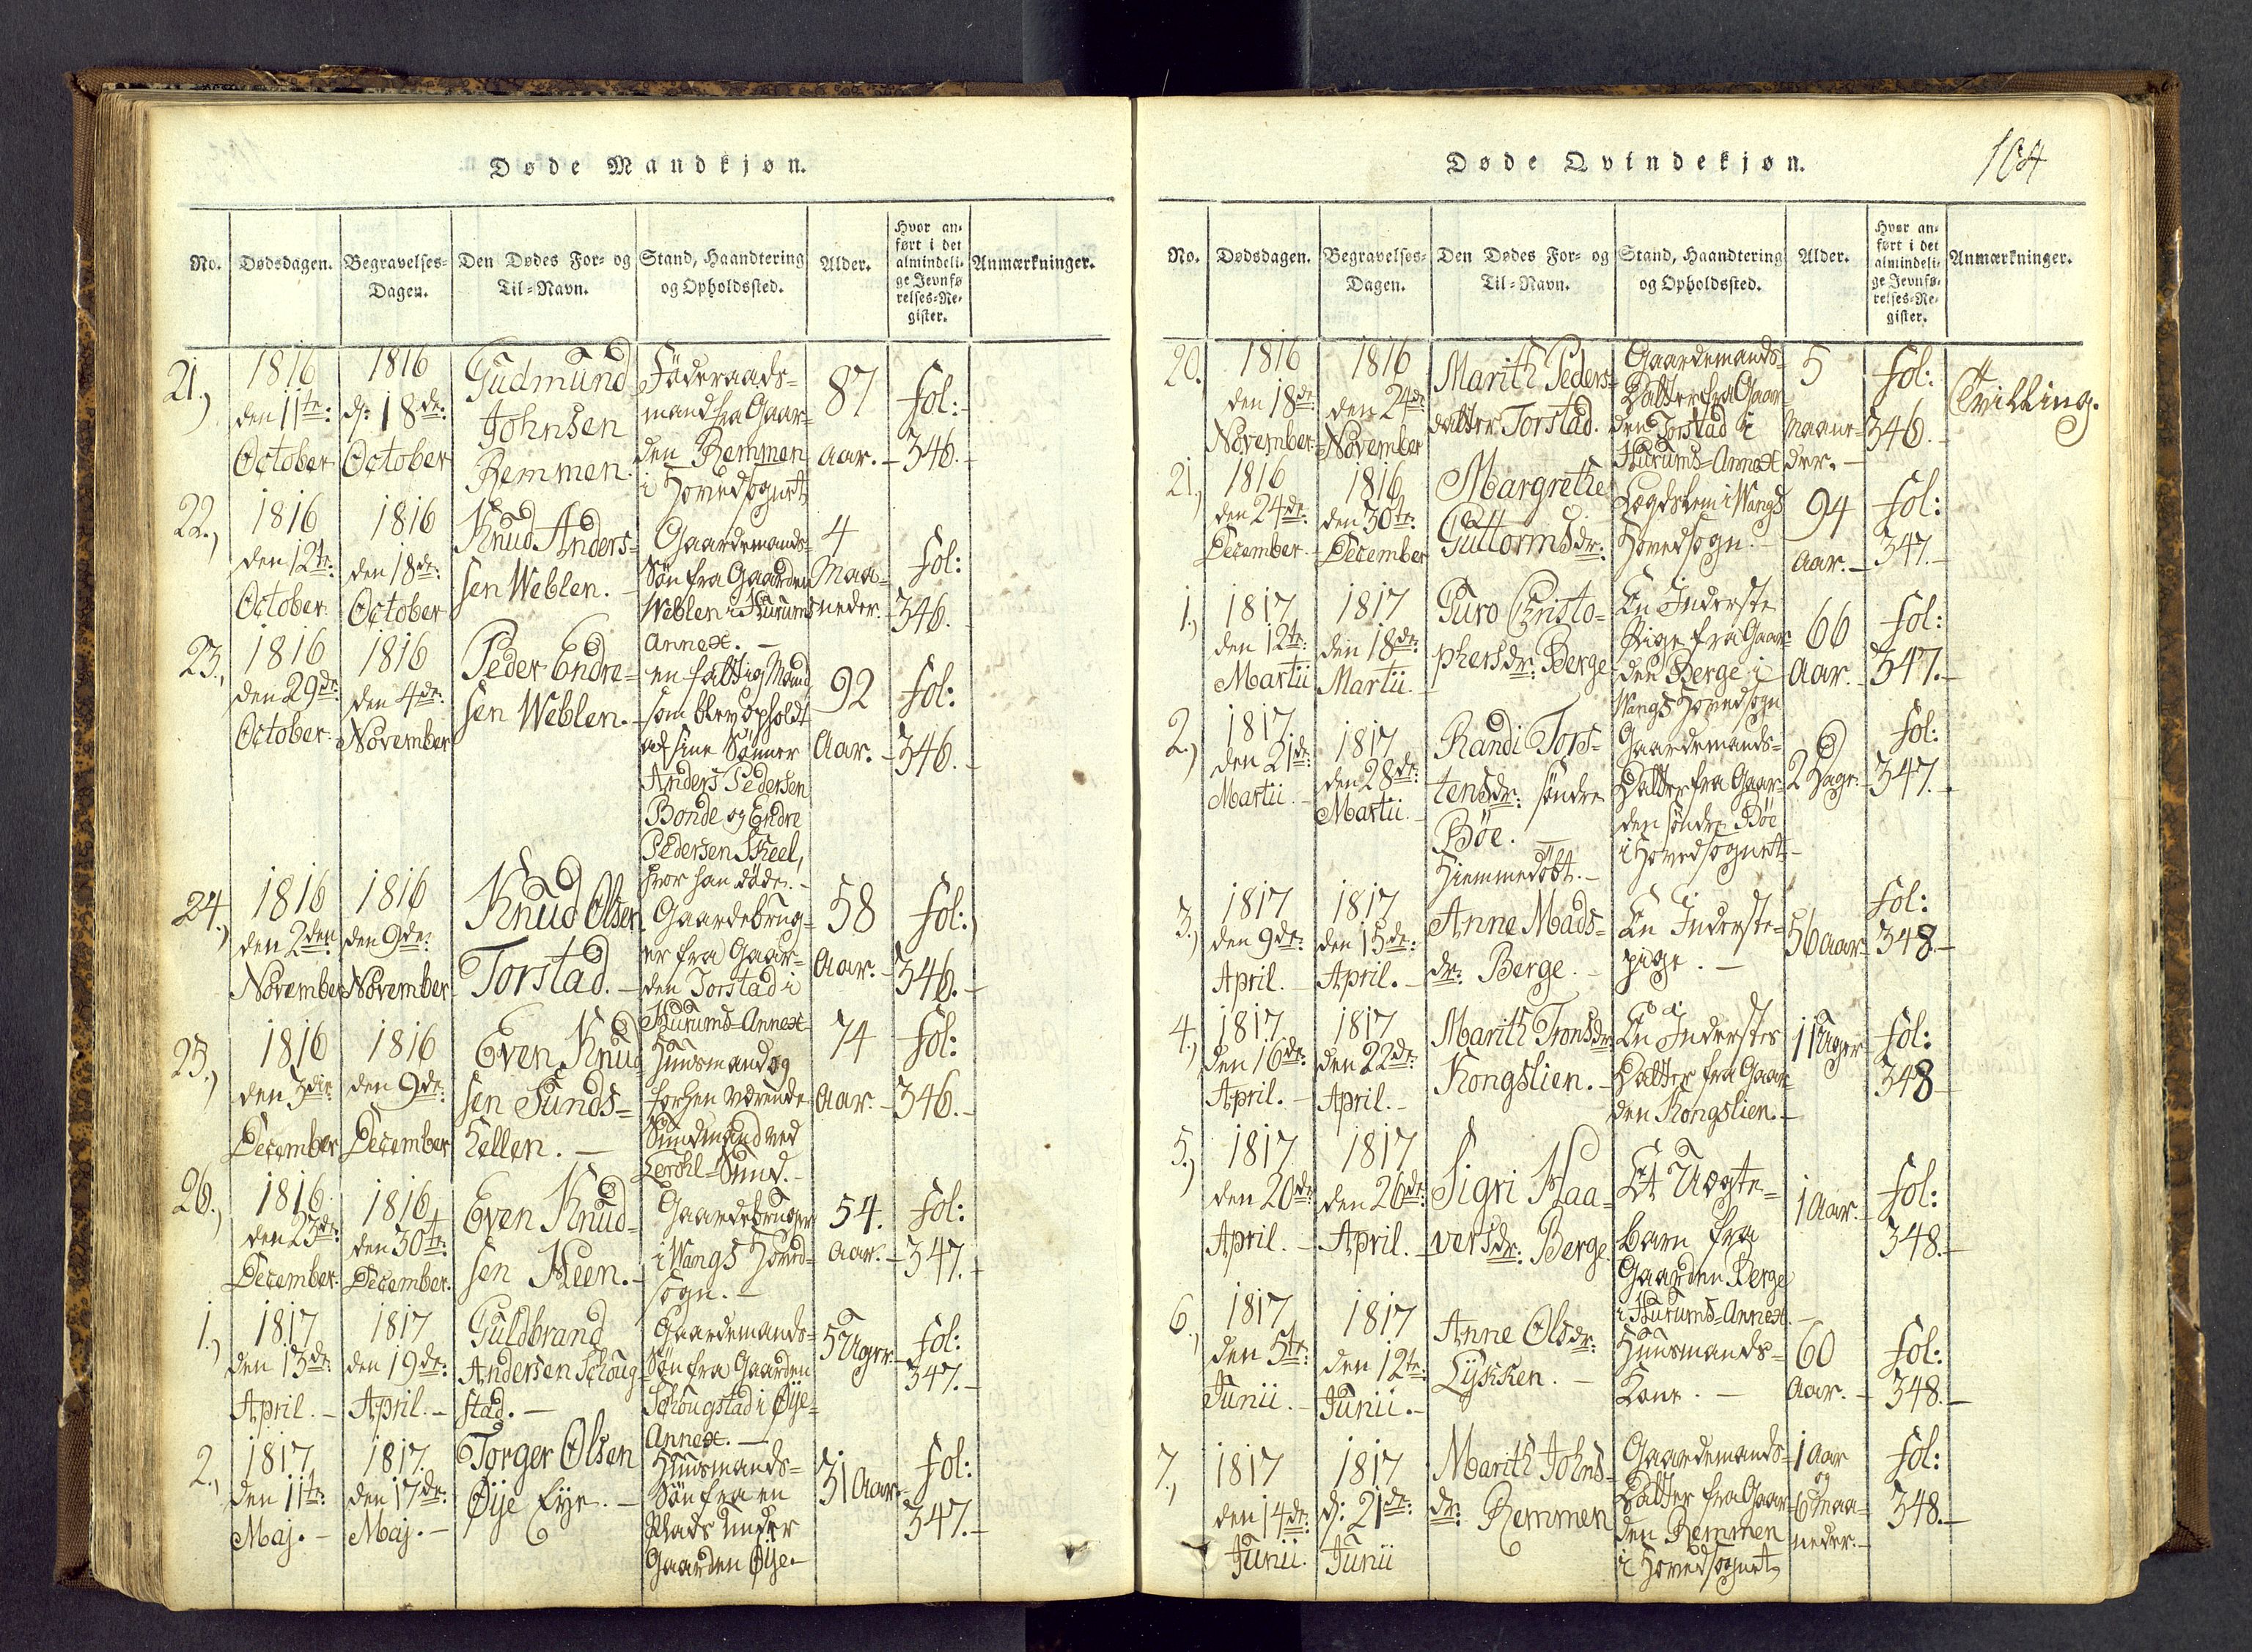 Døde Mandkjøn.
No.
Dødsdagen.
Begravelses-
Dagen.
Den Dødes For- og
Til-Navn.
Stand, Haandtering
og Opholdssted.
Alder.
Hvor an-
ført i det
almindeli-
ge Jevnfø-
relses-Re-
gister.
Anmærkninger.
21.,
1816
den 11te:
October
1816
d: 18de:
October
Gudmund
Johnsen
Remmen.
Föderaads-
mand fra Gaar-
den Remmen
i Hovedsognet
87
Aar.
fol:
346.
22.,
1816
den 12te:
October
1816
den 18de:
October
Knud Anders-
sen Weblen.
Gaardemands-
Søn fra Gaarden
Weblen i Hurums
Annex.
4
Maa-
neder.
fol:
346.
23.,
1816
den 29de:
October
1816
den 4de:
November
Peder Endre-
sen Weblen.
en fattig Mand
som blev opholdt
af sine Sønner
Anders Pedersen
Bonde og Endre
Pedersen Skeel,
hvor han døde.
92
Aar.
fol:
346.
24.,
1816
den 2den
November
1816
den 9de:
November
Knud Olsen
Torstad.
Gaardebrug-
er fra Gaar-
den Torstad i
Hurums-Annex
58
Aar.
fol:
346.
25.,
1816
den 3die
December
1816
den 9de:
December
Even Knud-
sen Sunds-
hellen.
Huusmand og
forhen værende
Sundmand ved
-Sund.
74
Aar.
fol:
346.
26.,
1816
den 23de:
December
1816
den 30te:
December
Even Knud-
sen Keen.
Gaardebruger
i Wangs Hoved-
sogn.
54.
Aar.
fol:
347.
1.,
1817
den 13de:
April.
1817
den 19de:
April.
Guldbrand
Andersen Schoug-
stad.
Gaardemands-
Søn fra Gaarden
Schougstad i Øije-
Annex.
5 Uger.
fol:
347.
2.,
1817
den 11te:
Maj.
1817
den 17de:
Maj.
Torger Olsen
Øije Eye.
Huusmands-
Søn fra en
Plads under
Gaarden Øije.
31 Aar.
fol:
347.
Døde Qvindekjøn.
104
No.
Dødsdagen.
Begravelses-
Dagen.
Den Dødes For- og
Til-Navn.
Stand, Haandtering
og Opholdssted.
Alder.
Hvor an-
ført i det
almindeli-
ge Jevnfø-
relses-Re-
gister.
Anmærkninger.
20.
1816
den 18de:
November
1816
den 24de:
November
Marith Peders-
datter Torstad.
Gaardemands-
Datter fra Gaar-
den Torstad i
Hurums-Annex
5
Maane-
der.
fol:
346.
Tvilling.
21.,
1816
den 24de:
December
1816
den 30te:
December
Margrethe
Guttormsdr:
Lægdslem i Wangs
Hovedsogn.
94
Aar.
fol:
347.
1.,
1817
den 12te:
Martii
1817
den 18de:
Martii.
Guro Christo-
phersdr: Berge
En Inderste
Pige fra Gaar-
den Berge i
Wangs Hovedsogn
66
Aar.
fol:
347.
2.,
1817.
den 21de:
Martii.
1817
den 28de:
Martii.
Randi Tors-
tensdr: søndre
Böe.
Hiemmedöbt.
Gaardemands-
Datter fra Gaar-
den søndre Böe
i Hovedsognet.
2 Dage.
fol:
347.
3.,
1817
den 9de:
April.
1817
den 15de:
April.
Anne Mads-
dr: Berge.
En Inderste-
pige.
56 Aar.
fol:
348.
4.,
1817
den 16de:
April.
1817
den 22de:
April.
Marith Tronsdr:
Kongslien.
En Inderstes
Datter fra Gaar-
den Kongslien.
11 Uger
fol:
348
5.,
1817
den 20de:
April.
1817
den 26de:
April.
Sigri Haa-
versdr: Berge.
Et Uægte-
barn fra
Gaarden Berge
i Hurums-Annex.
1 Aar.
fol:
348.
6.,
1817
den 5te:
Junii.
1817
den 12te:
Junii.
Anne Olsdr:
Lykken.
Huusmands-
Kone.
60
Aar.
fol:
348.
7.,
1817
den 14de:
Junii.
1817
d: 21de:
Junii
Marith Johns-
dr: Remmen
Gaardemands-
Datter fra Gaar-
den Remmen
i Hovedsognet
1 Aar
og
6 Maa-
neder.
fol:
348.